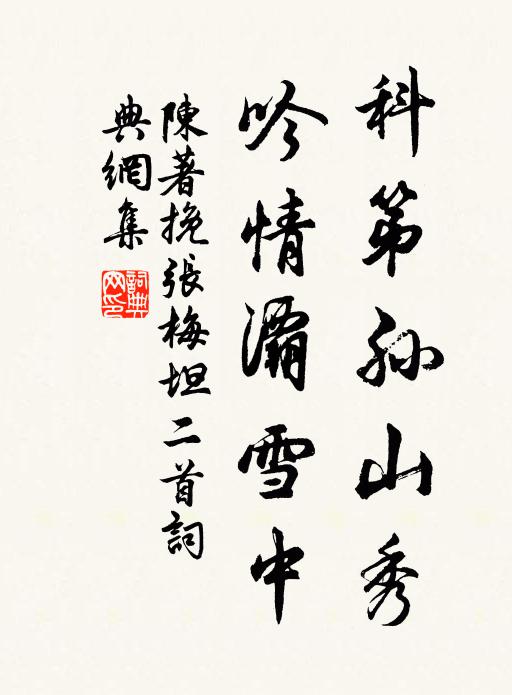 科第孙山秀
吟情灞雪中
陳著挽張梅坦二首詞
典網集
詞典網印